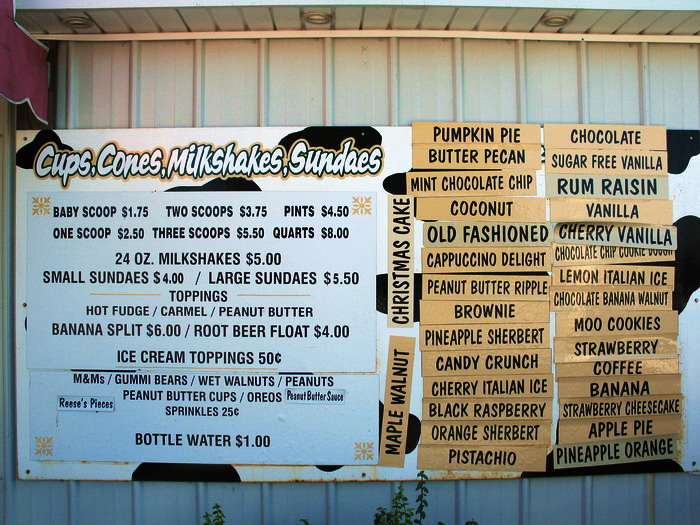 Cups,Cones,Milkshakes,Sundaes
BABY SCOOP $1.75 TWO SCOOPS $3.75 PINTS $4.50
ONE SCOOP $2.50 THREE SCOOPS $5.50 QUARTS $8.00
24 OZ. MILKSHAKES $5.00
SMALL SUNDAES $4.00 / LARGE SUNDAES $5.50
TOPPINGS
HOT FUDGE / CARMEL / PEANUT BUTTER
BANANA SPLIT $6.00 / ROOT BEER FLOAT $4.00
ICE CREAM TOPPINGS 50¢
M&Ms / GUMMI BEARS / WET WALNUTS / PEANUTS
Reese's Pieces PEANUT BUTTER CUPS / OREOS Peanut Butter Sauce
SPRINKLES 25¢
BOTTLE WATER $1.00
CHRISTMAS CAKE
MAPLE WALNUT
PUMPKIN PIE
BUTTER PECAN
MINT CHOCOLATE CHIP
COCONUT
OLD FASHIONED
CAPPUCCINO DELIGHT
PEANUT BUTTER RIPPLE
BROWNIE
PINEAPPLE SHERBERT
CANDY CRUNCH
CHERRY ITALIAN ICE
BLACK RASPBERRY
ORANGE SHERBERT
PISTACHIO
CHOCOLATE
SUGAR FREE VANILLA
RUM RAISIN
VANILLA
CHERRY VANILLA
CHOCOLATE CHIP COOKIE DOUGH
LEMON ITALIAN ICE
CHOCOLATE BANANA WALNUT
MOO COOKIES
STRAWBERRY
COFFEE
BANANA
STRAWBERRY CHEESECAKE
APPLE PIE
PINEAPPLE ORANGE